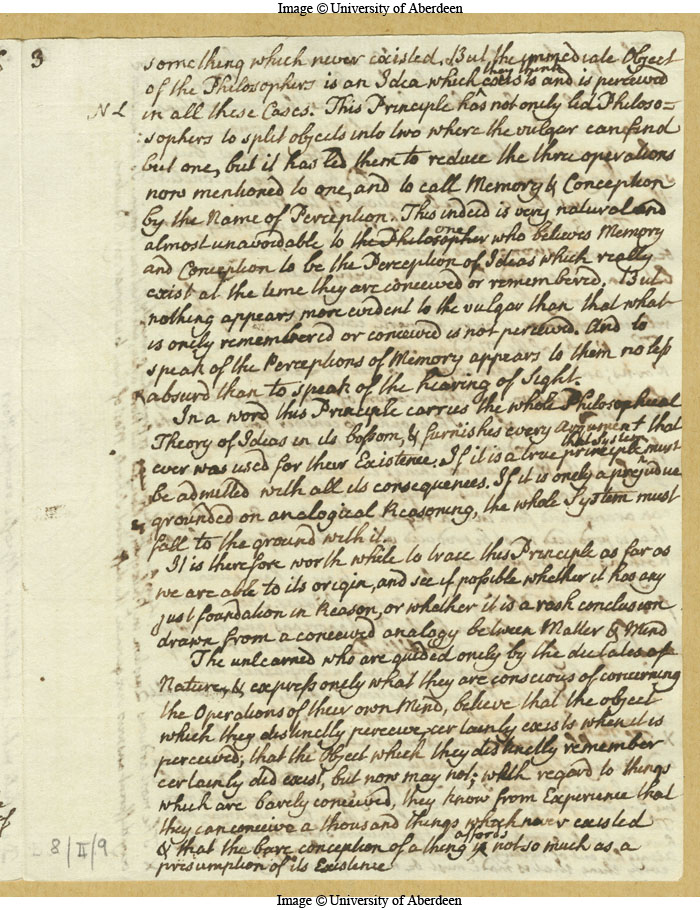 Image © University of Aberdeen
3
something which never existed. But the immediate Object
of the Philosophers is an Idea which they think exists and is perceived
NL in all these Cases. This Principle has not onely led Philoso=
sophers to split objects into two where the vulgar can find
but one, but it has led them to reduce the three operations
now mentioned to one, and to call Memory & Conception
by the Name of Perception. This indeed is very natural and
almost unavoidable to the Philosopher one who believes Memory
and Conception to be the Perception of Ideas which really
exist at the time they are conceived or remembered. But
nothing appears more evident to the vulgar than that what
is onely remembered or conceived is not perceived. And to
speak of the Perceptions of Memory appears to them no less
absurd than to speak of the hearing of Sight.
In a word this Principle carries the whole Philosophical
Theory of Ideas in its bossom, & furnishes every argument that
ever was used for their Existence. If it is a true principle that System must
be admitted with all its consequences. If it is onely a prejudice
grounded on analogical Reasoning, the whole System must
fall to the ground with it.
It is therefore worth while to trace this Principle as far as
we are able to its origin, and see if possible whether it has any
just foundation in Reason, or whether it is a rash conclusion
drawn from a conceived analogy between Matter & Mind
The unlearned who are guided onely by the dictates of
Nature, & express onely what they are conscious of concerning
the Operations of their own Mind, believe that the object
which they distinctly perceive certainly exists when it is
perceived; that the Object which they distinctly remember
certainly did exist, but now may not; with regard to things
which are barely conceived, they know from Experience that
they can conceive a thousand things which never existed
& that the bare conception of a thing affords not so much as a
presumption of its Existence
8/II/9
Image © University of Aberdeen